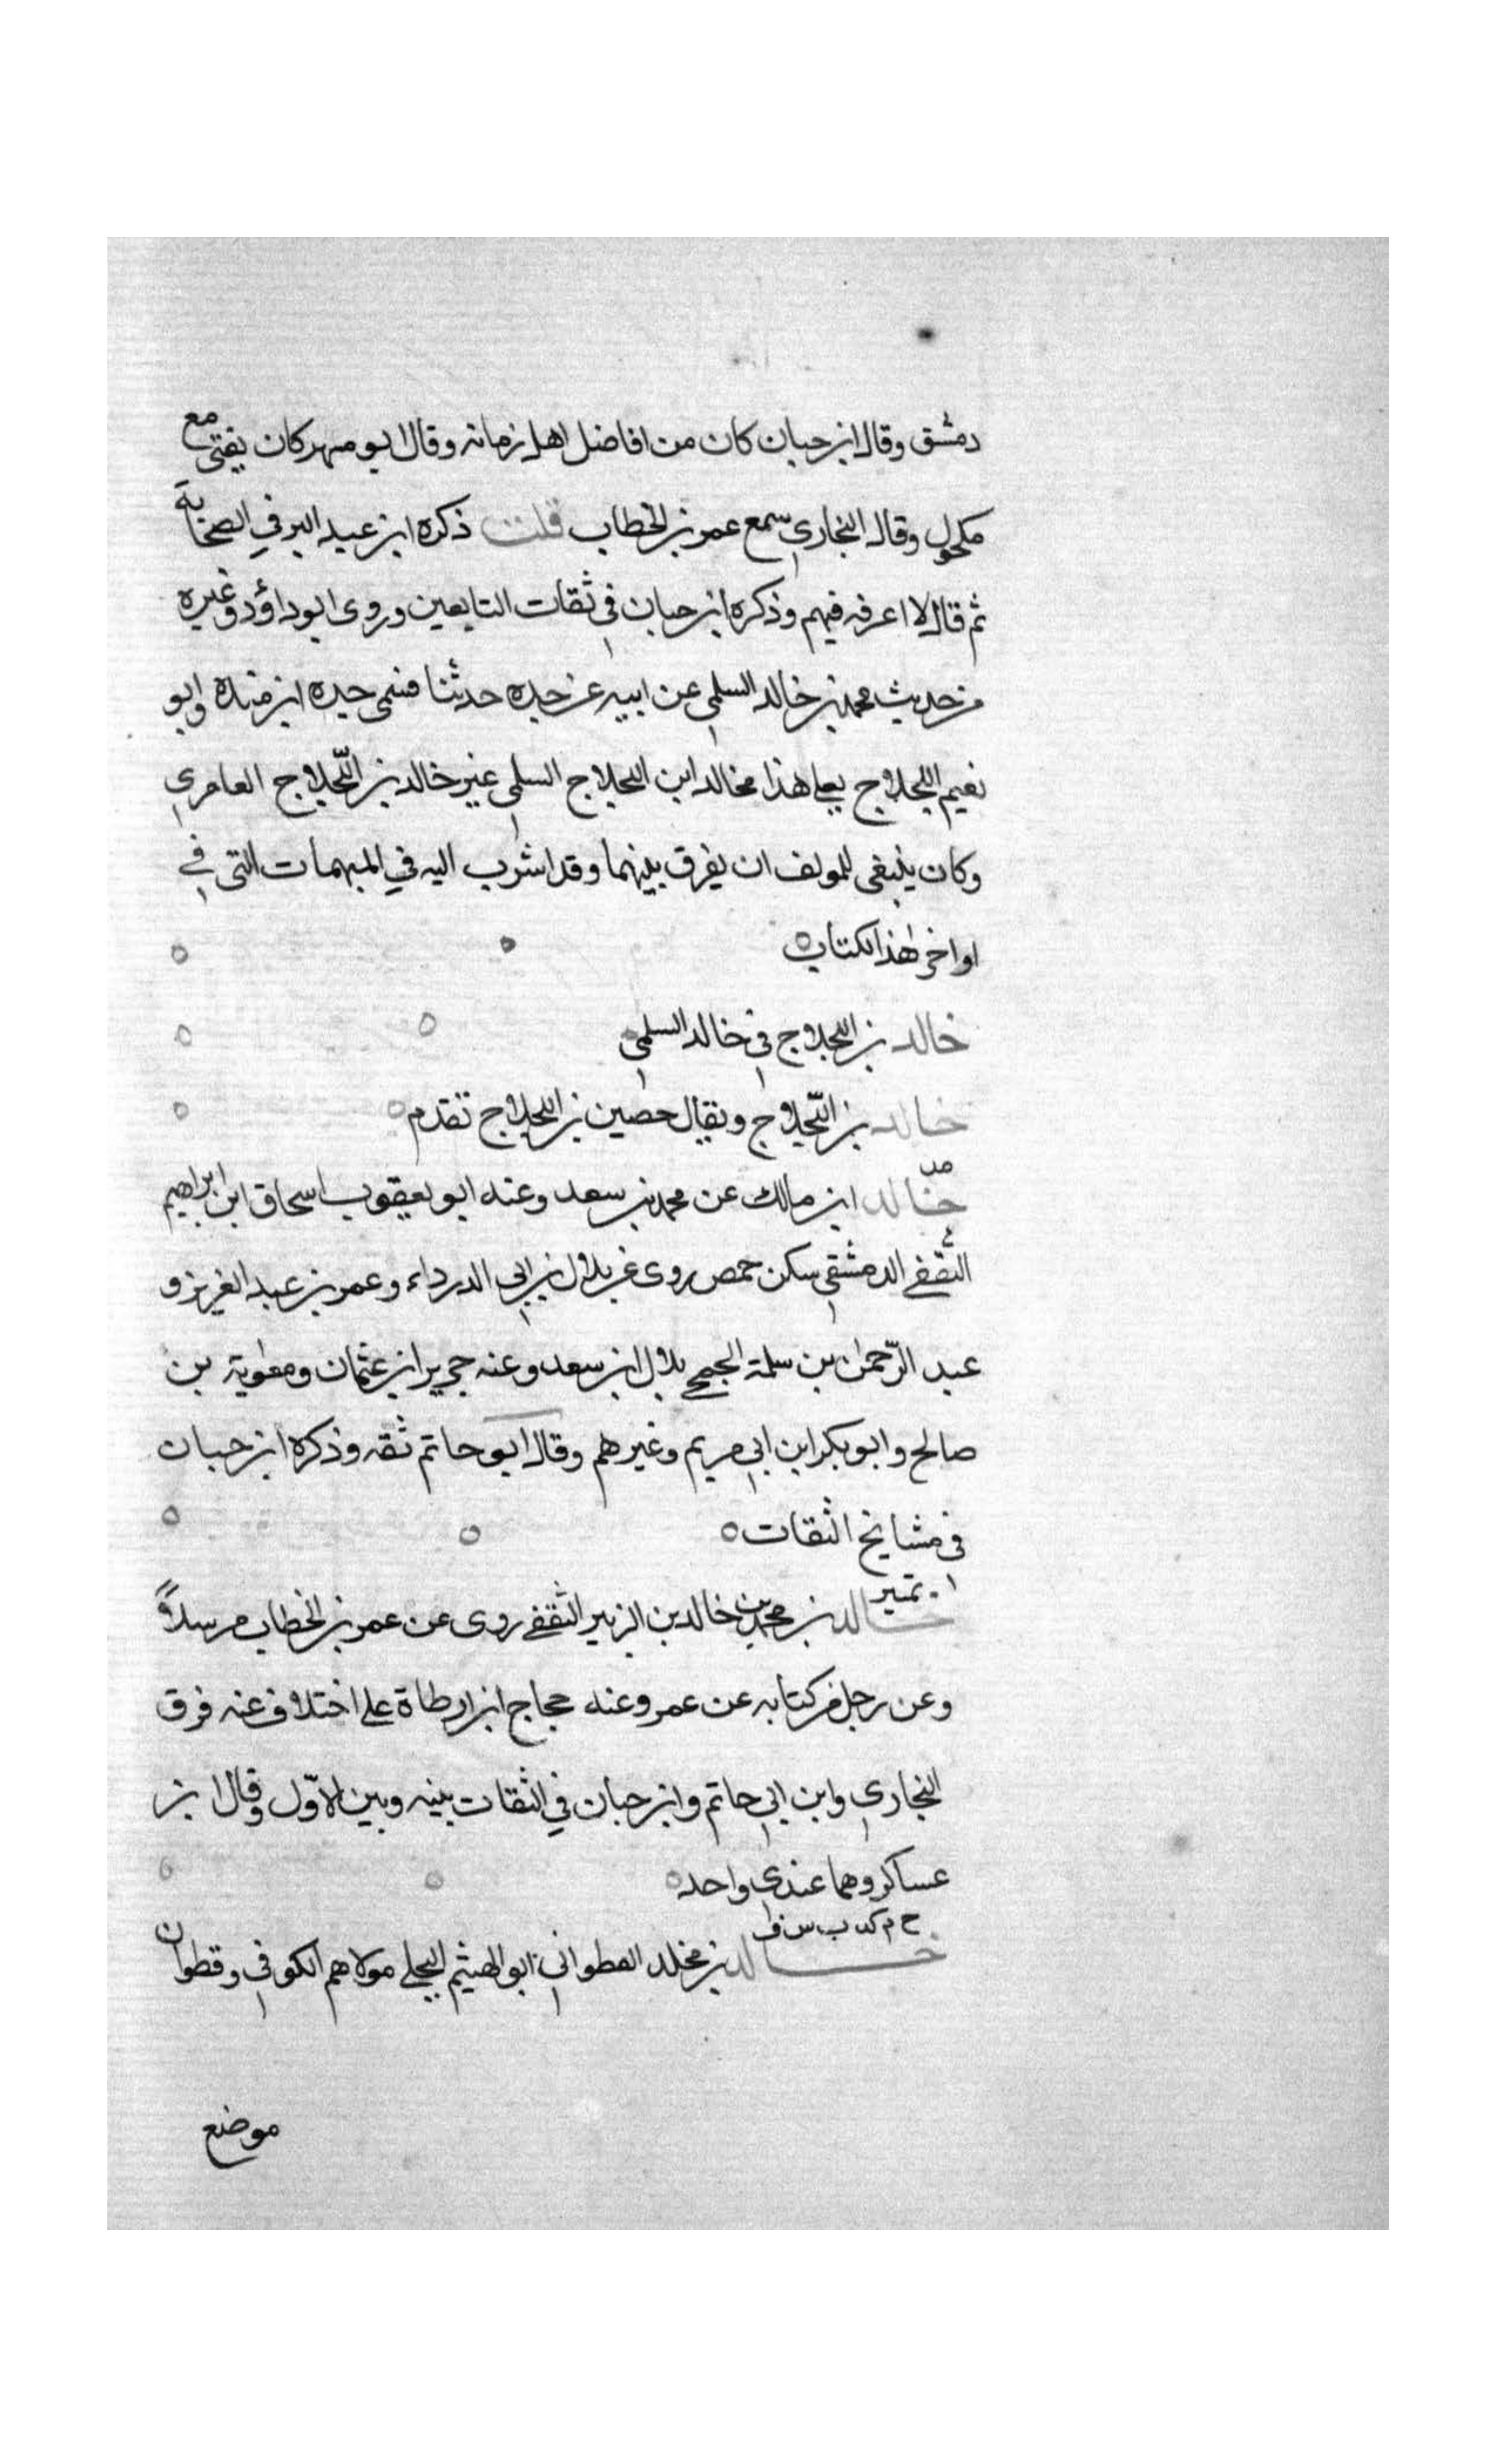 دمشق وقال ابن حبان كان من افاضل اهل زمانه وقال ابو مسهر كان يفتى مع
مكحول وقال البخاري سمع عمر بن الخطاب قلت ذكره ابن عبد البر في الصحابة
ثم قال لا اعرفه فيهم وذكره ابن حبان في ثقات التابعين وروى ابو داؤد وغيره
من حديث محمد بن خالد السلمي عن ابيه عن جده حدثنا فسمى جده ابن منده وابو
نعيم اللجلاج فعلى هذا فخالد ابن اللجلاج السلمى غير خالد بن اللّجلاج العامري
وكان ينبغى للمولف ان يفرق بينهما وقد اشرت اليه في المبهمات التى في
اواخر هذا الكتاب
خالد بن اللجلاج في خالد السلمي
خالد بن اللّجلاج ويقال حصين بن اللجلاج تقدم
مد
خالد ابن مالك عن محمد بن سعد وعنه ابو يعقوب اسحاق ابن ابراهيم
الثقفي الدمشقي سكن حمص روى عن بلال بن ابي الدرداء وعمر بن عبد العزيز و
عبد الرّحمٰن بن سلمة الجمحي بلال ابن سعد وعنه جرير ابن عثمان ومعٰوية بن
صالح وابو بكر ابن ابي مريم وغيرهم وقال ابو حاتم ثقه وذكره ابن حبان
في مشايخ الثقات
تميز
خالد بن محمد بن خالد بن الزبير الثقفي روى عن عمر بن الخطاب مرسلاً
وعن رجل من كتابه عن عمر وعنه حجاج ابن ارطاة على اختلاف عنه فرق
البخاري وابن ابي حاتم وابن حبان في الثقات بينه وبين الاوّل وقال ابن
عساكر وهما عندي واحد
خ م كد ت س ق
خالد بن مخلد القطواني ابو الهيثم البجلي مولاهم الكوفي وقطوان
موضع